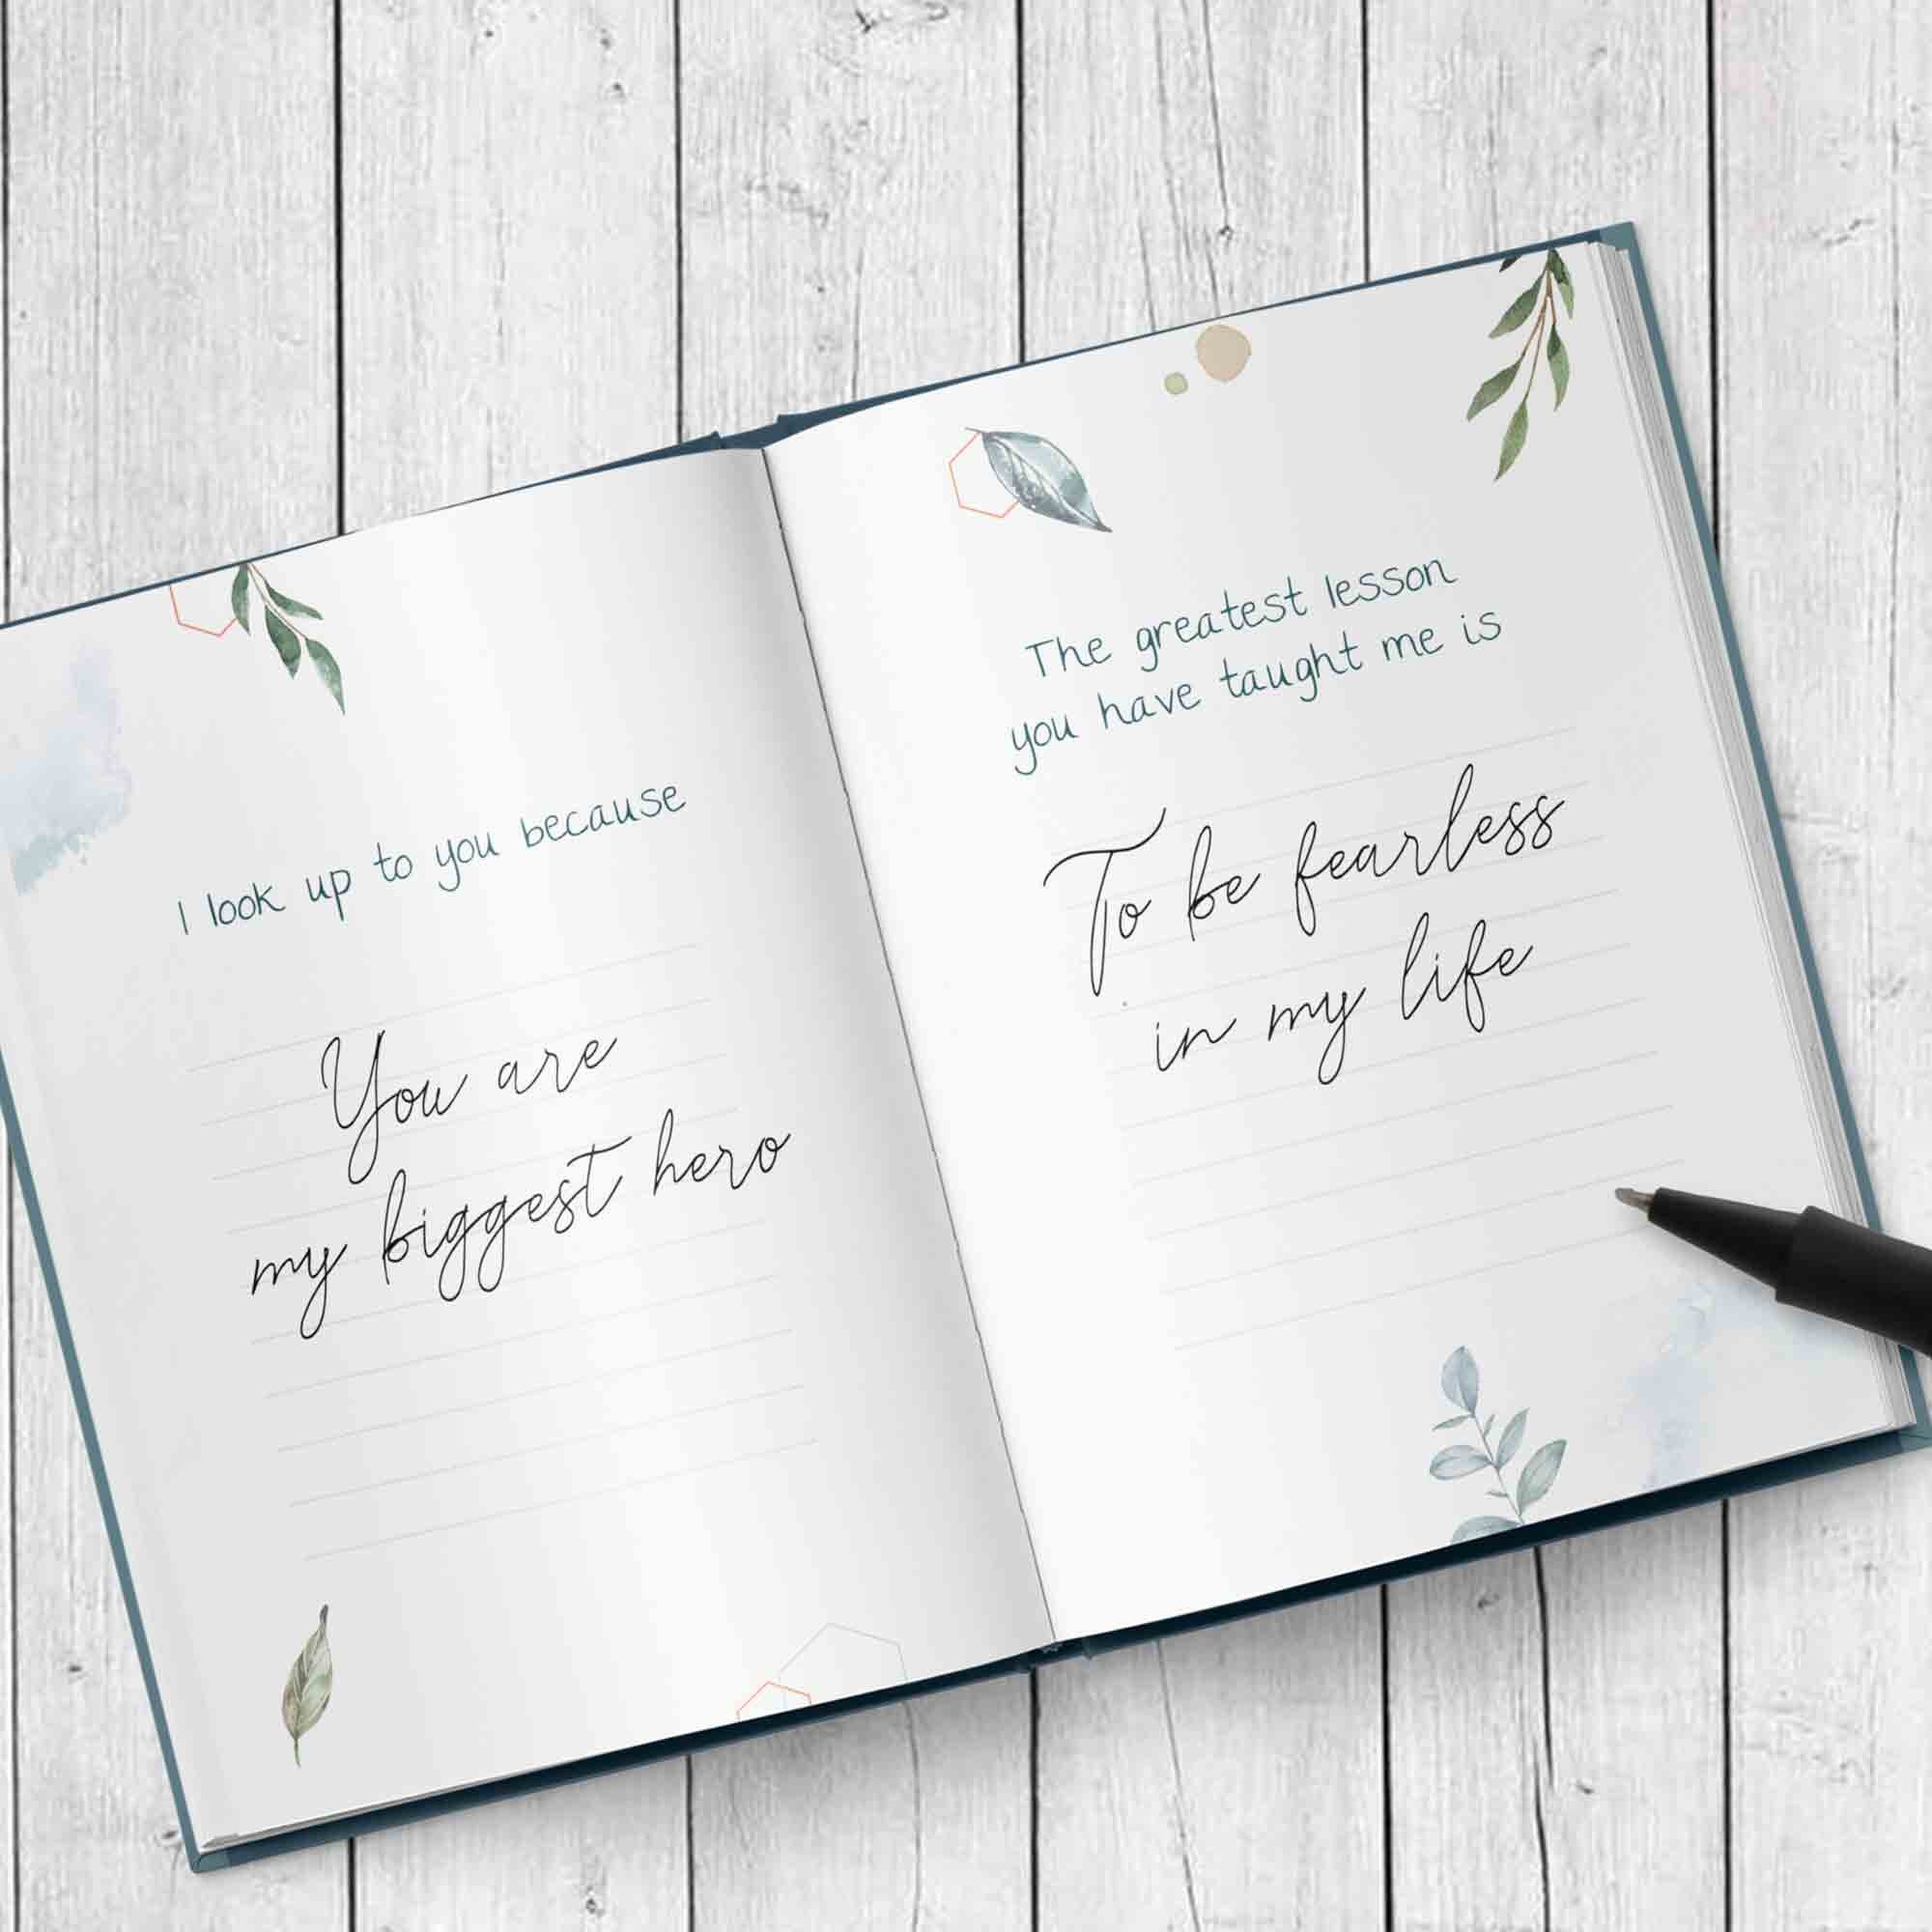 I look up to you because
You are
my biggest hero
The greatest lesson
you have taught me is
To be fearless
in my life